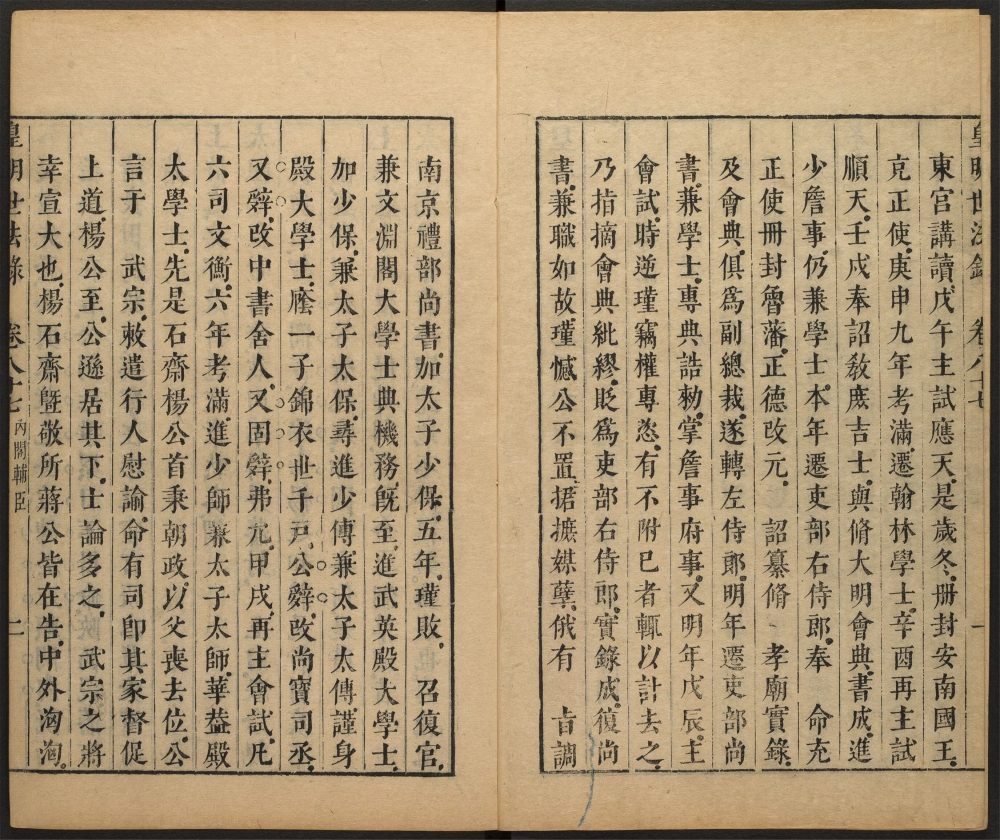 皇明世法錄 卷八十七 一
東宮講讀戊午主試應天是歲冬册封安南國王
充正使庚申九年考滿遷翰林學士辛酉再主試
順天壬戌奉詔敎庶吉士與脩大明會典書成進
少詹事仍兼學士本年遷吏部右侍郎奉 命充
正使冊封魯藩正德改元 詔纂脩 孝廟實錄
及會典俱爲副總裁遂轉左侍郎明年遷吏部尚
書兼學士專典誥勅掌詹事府事又明年戊辰主
會試時逆瑾竊權專恣有不附巳者輒以計去之
乃指摘會典紕繆貶爲吏部右侍郎實錄成復尚
書兼職如故瑾憾公不置掂摭媒孽俄有 旨調
南京禮部尚書加太子少保五年瑾敗 召復官
兼文淵閣大學士典機務旣至進武英殿大學士
加少保兼太子太保尋進少傳兼太子太傳謹身
殿大學士廕一子錦衣世千戶公辤改尚寶司丞
又辤改中書舍人又固辤弗允甲戌再主會試凡
六司文衡六年考滿進少師兼太子太師華葢殿
太學士先是石齋楊公首秉朝政以父喪去位公
言于 武宗敕遣行人慰諭命有司卽其家督促
上道楊公至公遜居其下士論多之 武宗之將
幸宣大也楊石齋曁敬所蔣公皆在告中外洶洶
皇明世法錄 卷八十七 內閣輔臣 二